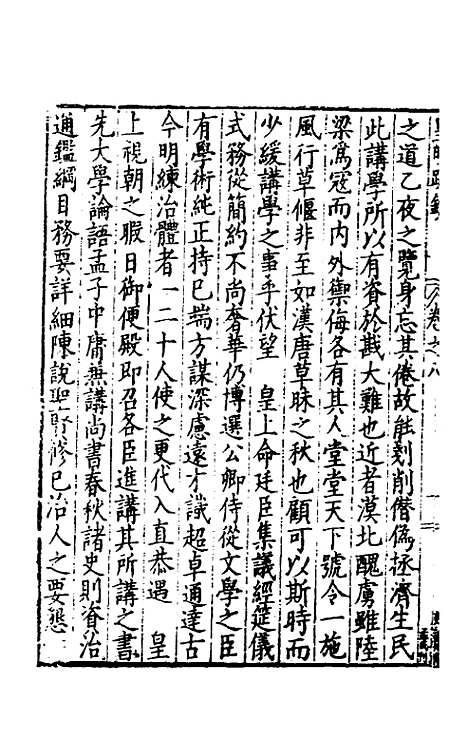 之道乙夜之覽身忘其倦故能剗削僭偽拯濟生民
此講學所以有資於戡大難也近者漠北醜虜雖陸
梁為寇而內外禦侮各有其人堂堂天下號令一施
風行草偃非至如漢唐草昧之秋也顧可以斯時而
少緩講學之事乎伏望 皇上命廷臣集議經筵儀
式務從簡約不尚奢華仍博選公卿侍從文學之臣
有學術純正持已端方謀深慮遠才識超卓通達古
今明練治體者一二十人使之更代入直恭遇 皇
上視朝之暇日御便殿即召各臣進講其所講之書
先大學論語孟子中庸兼講尚書春秋諸史則資治
通鑑綱目務要詳細陳說聖賢修已治人之要懇
卷之八